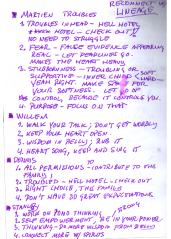 RECONNECT W/
LINEAGE
MARTIEN TROUBLES
1. TROUBLES IN HEAD - HELL HOTEL
HOTEL - CHECK OUT!!
NO NEED TO STRUGGLE
2. FEAR - FALSE EVIDENCE APPEARING
REAL - LET READINGS GO.
MAKES THE HEART HEAVY
3. STUBBORNNESS - TROUBLING OR
SUPPORTIVE - INNER CHILD - SOFT
YEAH RIGHT. MAKE HARD
YOUR SOFTNESS. LET GO OF
CONTROL, BECAUSE IT CONTROLS YOU
4. PURPOSE - FOCUS ON THAT
WILLEM
1. WALK YOUR TALK; DON'T GET WORDLY
2. KEEP YOUR HEART OPEN.
3. WISDOM IN BELLY; RUB IT.
4. HEART SONG, KEEP AND SING IT
DENNIS
1. ALL PERMISSIONS - CONTRIBUTE TO THE
FAMILY!
2. TROUBLED - HELL HOTEL - CHECK OUT
3. RIGHT CHOICE, THE FAMILY
4. DON'T HAVE SO GREAT EXPECTATIONS
STANLEY
1. WORK ON POND THINKING,
2. SELF EMPOWERMENT, BE IN YOUR POWER
3. THINKING - DO MORE WISDOM FROM BELLY
4. CONNECT MORE W/ SPIRITS